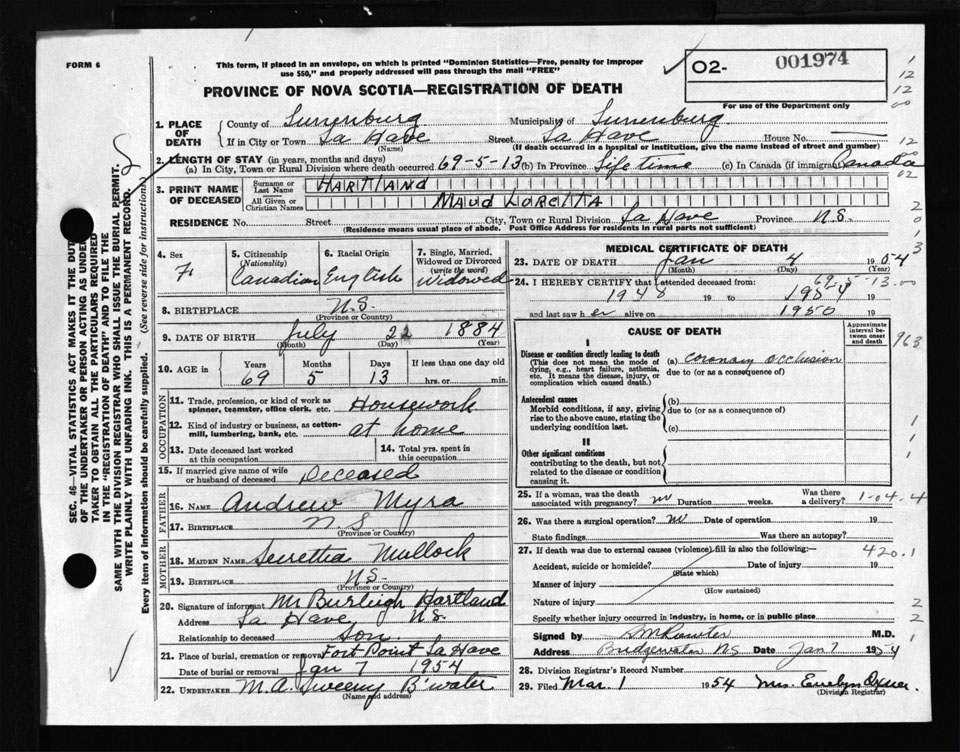 FORM 6
This form, if placed in an envelope, on which is printed "Dominion Statistics—Free, penalty for improper
use $50," and properly addressed will pass through the mail "FREE"
PROVINCE OF NOVA SCOTIA—REGISTRATION OF DEATH
02- 001974
For use of the Department only
1. PLACE OF DEATH
County of Lunenburg Municipality of Lunenburg
If in City or Town La Have Street La Have House No. —
(Name) (If death occurred in a hospital or institution, give the name instead of street and number)
2. LENGTH OF STAY (in years, months and days)
(a) In City, Town or Rural Division where death occurred 69-5-13 (b) In Province Life time (c) In Canada (if immigrant) Canada
3. PRINT NAME OF DECEASED
Surname or Last Name HARTLAND
All Given or Christian Names MAUD LORETTA
RESIDENCE No. Street City, Town or Rural Division La Have Province N.S.
(Residence means usual place of abode. Post Office Address for residents in rural parts not sufficient)
4. Sex F.
5. Citizenship (Nationality) Canadian
6. Racial Origin English
7. Single, Married, Widowed or Divorced (write the word) Widowed
8. BIRTHPLACE N.S.
(Province or Country)
9. DATE OF BIRTH July 22 1884
(Month) (Day) (Year)
10. AGE in Years Months Days If less than one day old
69 5 13 hrs. or min.
OCCUPATION
11. Trade, profession, or kind of work as spinner, teamster, office clerk, etc. Housework
12. Kind of industry or business, as cotton-mill, lumbering, bank, etc. at home
13. Date deceased last worked at this occupation
14. Total yrs. spent in this occupation
15. If married give name of wife or husband of deceased Deceased
FATHER
16. NAME Andrew Myra
17. BIRTHPLACE N.S
(Province or Country)
MOTHER
18. MAIDEN NAME Mullock
19. BIRTHPLACE N.S.
(Province or Country)
20. Signature of informant Mr Burleigh Hartland
Address La Have N.S.
Relationship to deceased son
21. Place of burial, cremation or removal Fort Point La Have
Date of burial or removal Jan 7 1954
22. UNDERTAKER M.A. Sweeny B'water
(Name and address)
MEDICAL CERTIFICATE OF DEATH
23. DATE OF DEATH Jan 4 1954
(Month) (Day) (Year)
24. I HEREBY CERTIFY that I attended deceased from:
1948 19 to 1954 19
and last saw her alive on 1950 19
CAUSE OF DEATH
Approximate interval between onset and death
I
Disease or condition directly leading to death
(This does not mean the mode of dying, e.g., heart failure, asthenia, etc. It means the disease, injury, or complication which caused death.)
(a) coronary occlusion
due to (or as a consequence of)
Antecedent causes
Morbid conditions, if any, giving rise to the above cause, stating the underlying condition last.
(b)
due to (or as a consequence of)
(c)
II
Other significant conditions
contributing to the death, but not related to the disease or condition causing it.
25. If a woman, was the death associated with pregnancy? no Duration weeks. Was there a delivery?
26. Was there a surgical operation? no Date of operation 19
State findings Was there an autopsy?
27. If death was due to external causes (violence) fill in also the following:—
Accident, suicide or homicide? Date of injury 19
(State which)
Manner of injury
(How sustained)
Nature of injury
Specify whether injury occurred in industry, in home, or in public place
Signed by M.D.
Address Bridgewater NS Date Jan 7 1954
28. Division Registrar's Record Number
29. Filed Mar. 1 1954 Mrs. Evelyn
(Division Registrar)
SEC. 46—VITAL STATISTICS ACT MAKES IT THE DUTY
OF THE UNDERTAKER OR PERSON ACTING AS UNDER-
TAKER TO OBTAIN ALL THE PARTICULARS REQUIRED
IN THE "REGISTRATION OF DEATH" AND TO FILE THE
SAME WITH THE DIVISION REGISTRAR WHO SHALL ISSUE THE BURIAL PERMIT.
WRITE PLAINLY WITH UNFADING INK. THIS IS A PERMANENT RECORD.
Every item of information should be carefully supplied. (See reverse side for instructions)
1
12
12
00
12
02
2
0
1
3
69-5-13.00
963
1
1
1-04.4
420.1
2
2
1